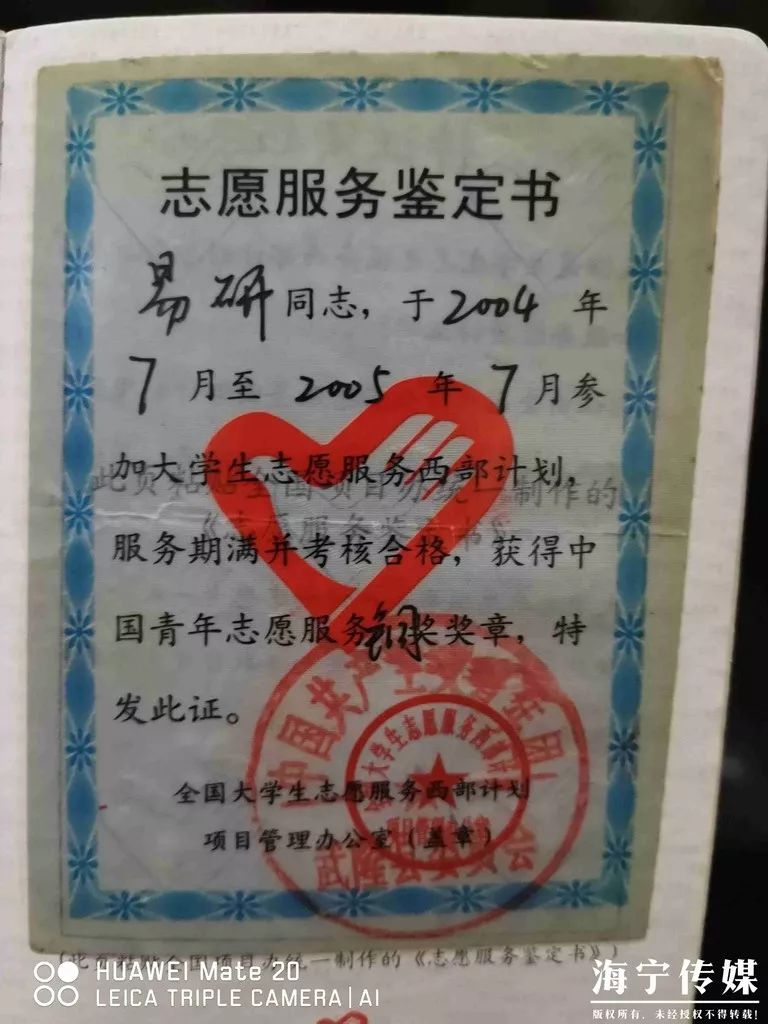 志愿服务鉴定书
易研同志，于2004年
7月至2005年7月参
加大学生志愿服务西部计划，
此页粘贴全国项目办统一制作的
《志愿服务鉴定书》
服务期满并考核合格，获得中
国青年志愿服务铜奖奖章，特
发此证。
中国共产主义青年团
全国大学生志愿服务西部计划
项目管理办公室（盖章）
武隆县委员会
（此页粘贴全国项目办统一制作的《志愿服务鉴定书》）
HUAWEI Mate 20
LEICA TRIPLE CAMERA | AI
海宁传媒
版权所有，未经授权不得转载！